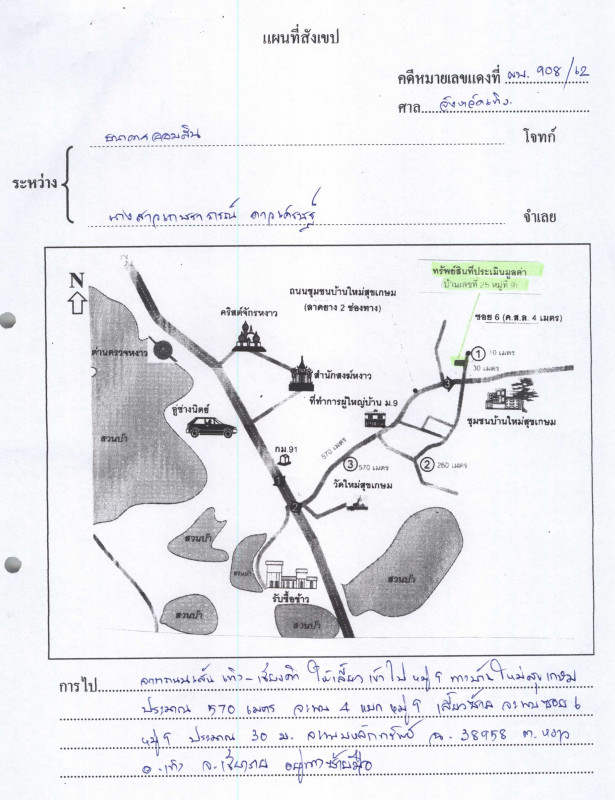 แผนที่สังเขป
คดีหมายเลขแดงที่ ผบ. 908/62
ศาล จังหวัดเทิง
ธนาคารออมสิน โจทก์
ระหว่าง
นางสาว จำเลย
N
ทรัพย์สินที่ประเมินมูลค่า
บ้านเลขที่ 25 หมู่ที่ 9
ถนนชุมชนบ้านใหม่สุขเกษม
(ลาดยาง 2 ช่องทาง)
ซอย 6 (ค.ส.ล. 4 เมตร)
คริสต์จักรหงาว
ด่านตรวจหงาว
สำนักสงฆ์หงาว
1 10 เมตร
30 เมตร
ที่ทำการผู้ใหญ่บ้าน ม.9
อู่ช่างนิตย์
ชุมชนบ้านใหม่สุขเกษม
สวนป่า
กม.91
570 เมตร
3 570 เมตร
2 260 เมตร
วัดใหม่สุขเกษม
สวนป่า
สวนป่า
สวนป่า
รับซื้อข้าว
สวนป่า
สวนป่า
การไป จากถนนเส้น เทิง-เชียงคำ ให้เลี้ยวเข้าไป หมู่ 9 ทางบ้านใหม่สุขเกษม
ประมาณ 570 เมตร จะพบ 4 แยก หมู่ 9 เลี้ยวซ้าย จะพบซอย 6
หมู่ 9 ประมาณ 30 ม. จะพบหลักทรัพย์ ฉ. 38958 ต.หงาว
อ.เทิง จ.เชียงราย อยู่ทางซ้ายมือ